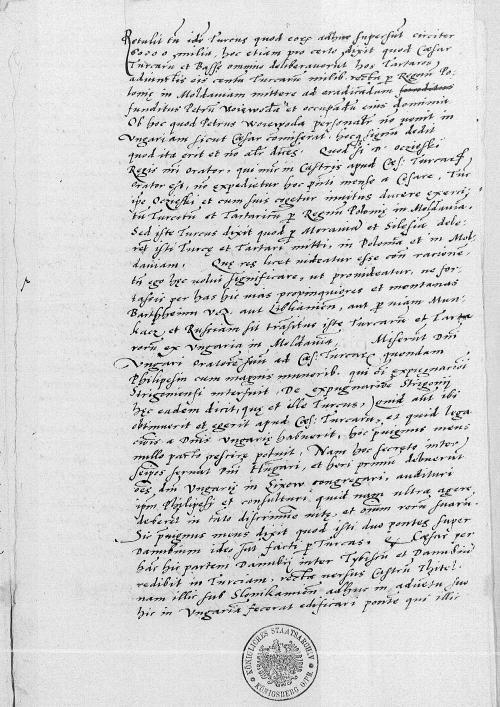 Retulit etiam idem Turcus quod eorum adhuc supersunt circiter
60000 milia, hoc etiam pro certo dixit quod Caesar
Turcarum et Basse omnino deliberaverunt hos Tartaros
adiunctis eis centum Turcarum milibus recta per Regnum Po-
loniae in Moldaviam mittere ad eradicandum
funditus Petrum Woiewoda et occupandum eius dominia
Ob hoc quod Petrus Woiewoda personaliter non venit in
Ungariam sicut Caesar commiserat, hocque signum dedit
quod ita erit et non aliter. Quod si D. Oczieski
Regis nostri orator, qui nunc in Castris apud Caes: Turcarum
orator est, non expedietur hoc praesenti mense a Caesare, tunc
ipse Oczieski et cum suis cogetur invitus ducere exerci-
tum Turcorum et Tartarorum per Regnum Poloniae in Moldaviam,
Sed iste Turcus dixit quod per Moraviam et Silesia debe-
rent isti Turcae et Tartari mitti, in Poloniam et in Mol-
daviam. Quae res licet videatur esse contra rationem,
tamen ego haec volui significare, ut provideatur, ne for-
tassis per has hic nias propinquiores et montanas
Bartffheim v.g. aut Liblianien, aut per viam Mun-
kacz et Russiam sit transitus iste Turcarum et Tarta
rorum ex Ungaria in Moldaviam. Miserunt Domini
Ungari Oratorem suum ad Caes: Turcarum quendam
Philipesin cum magnis muneribus. qui expugnationi
Strigoniensi interfuit, De expugnatione Strigonii
haec eadem dicit, quae et ille Turcus, quid aut ibi
obtinuerit et egerit apud Caes: Turcarum, et quid lega
cionis a Dominis Ungaris habuerit, hoc puignus meus
nullo pacto rescire potuit, Nam hoc secreto inter
seipsos servant Domini Hungari, et heri primum debuerunt
omnes domini Ungariae in Sixow congregari, audituri
ipsum Philipesi et consulturi quid nam ultra agere
deberent in tanto discrimine vitae, et omnium rerum suarum.
Sic puignus meus dixit quod isti duo pontes super
Danubium ideo sunt facti per Turcas, Caesar per
has hic partem Danubii inter Tybiscum et Danubium
redibit in Turciam, recta versus Castrum Thitel.
nam illic sub Slonikamien adhuc in adventu suo
hic in Ungariam fecerat edificari pontem qui illic
KÖNIGLICHES STAATSARCHIV
KÖNIGSBERG O/PR.